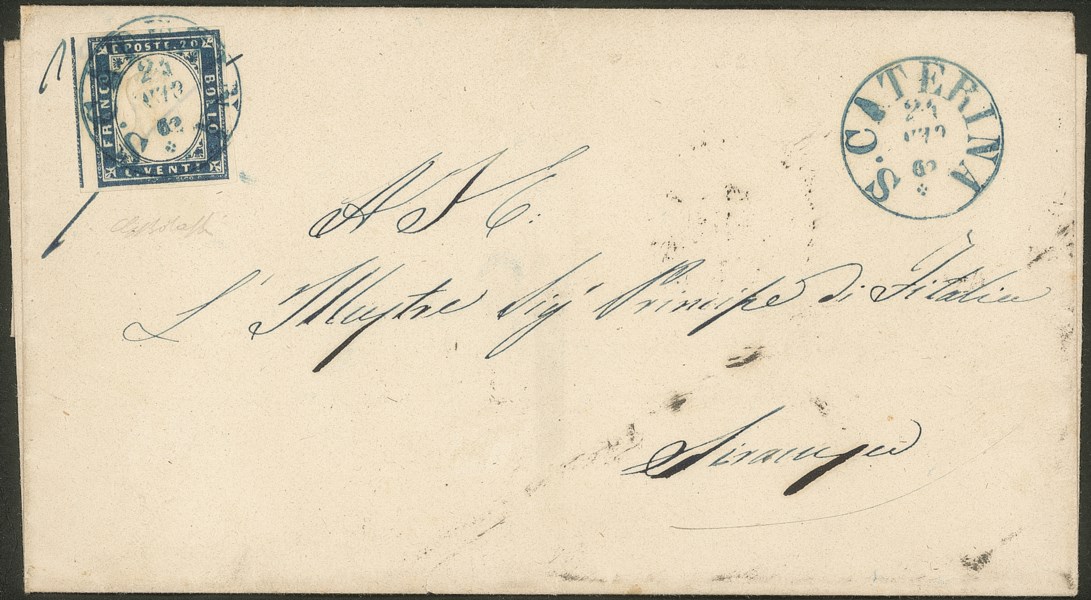 C. POSTE. 20
FRANCO
BOLLO
C. VENTI
S. CATERINA
24
62
S. CATERINA
24
62
A S. E.
L' Illustre Sig.r Principe di